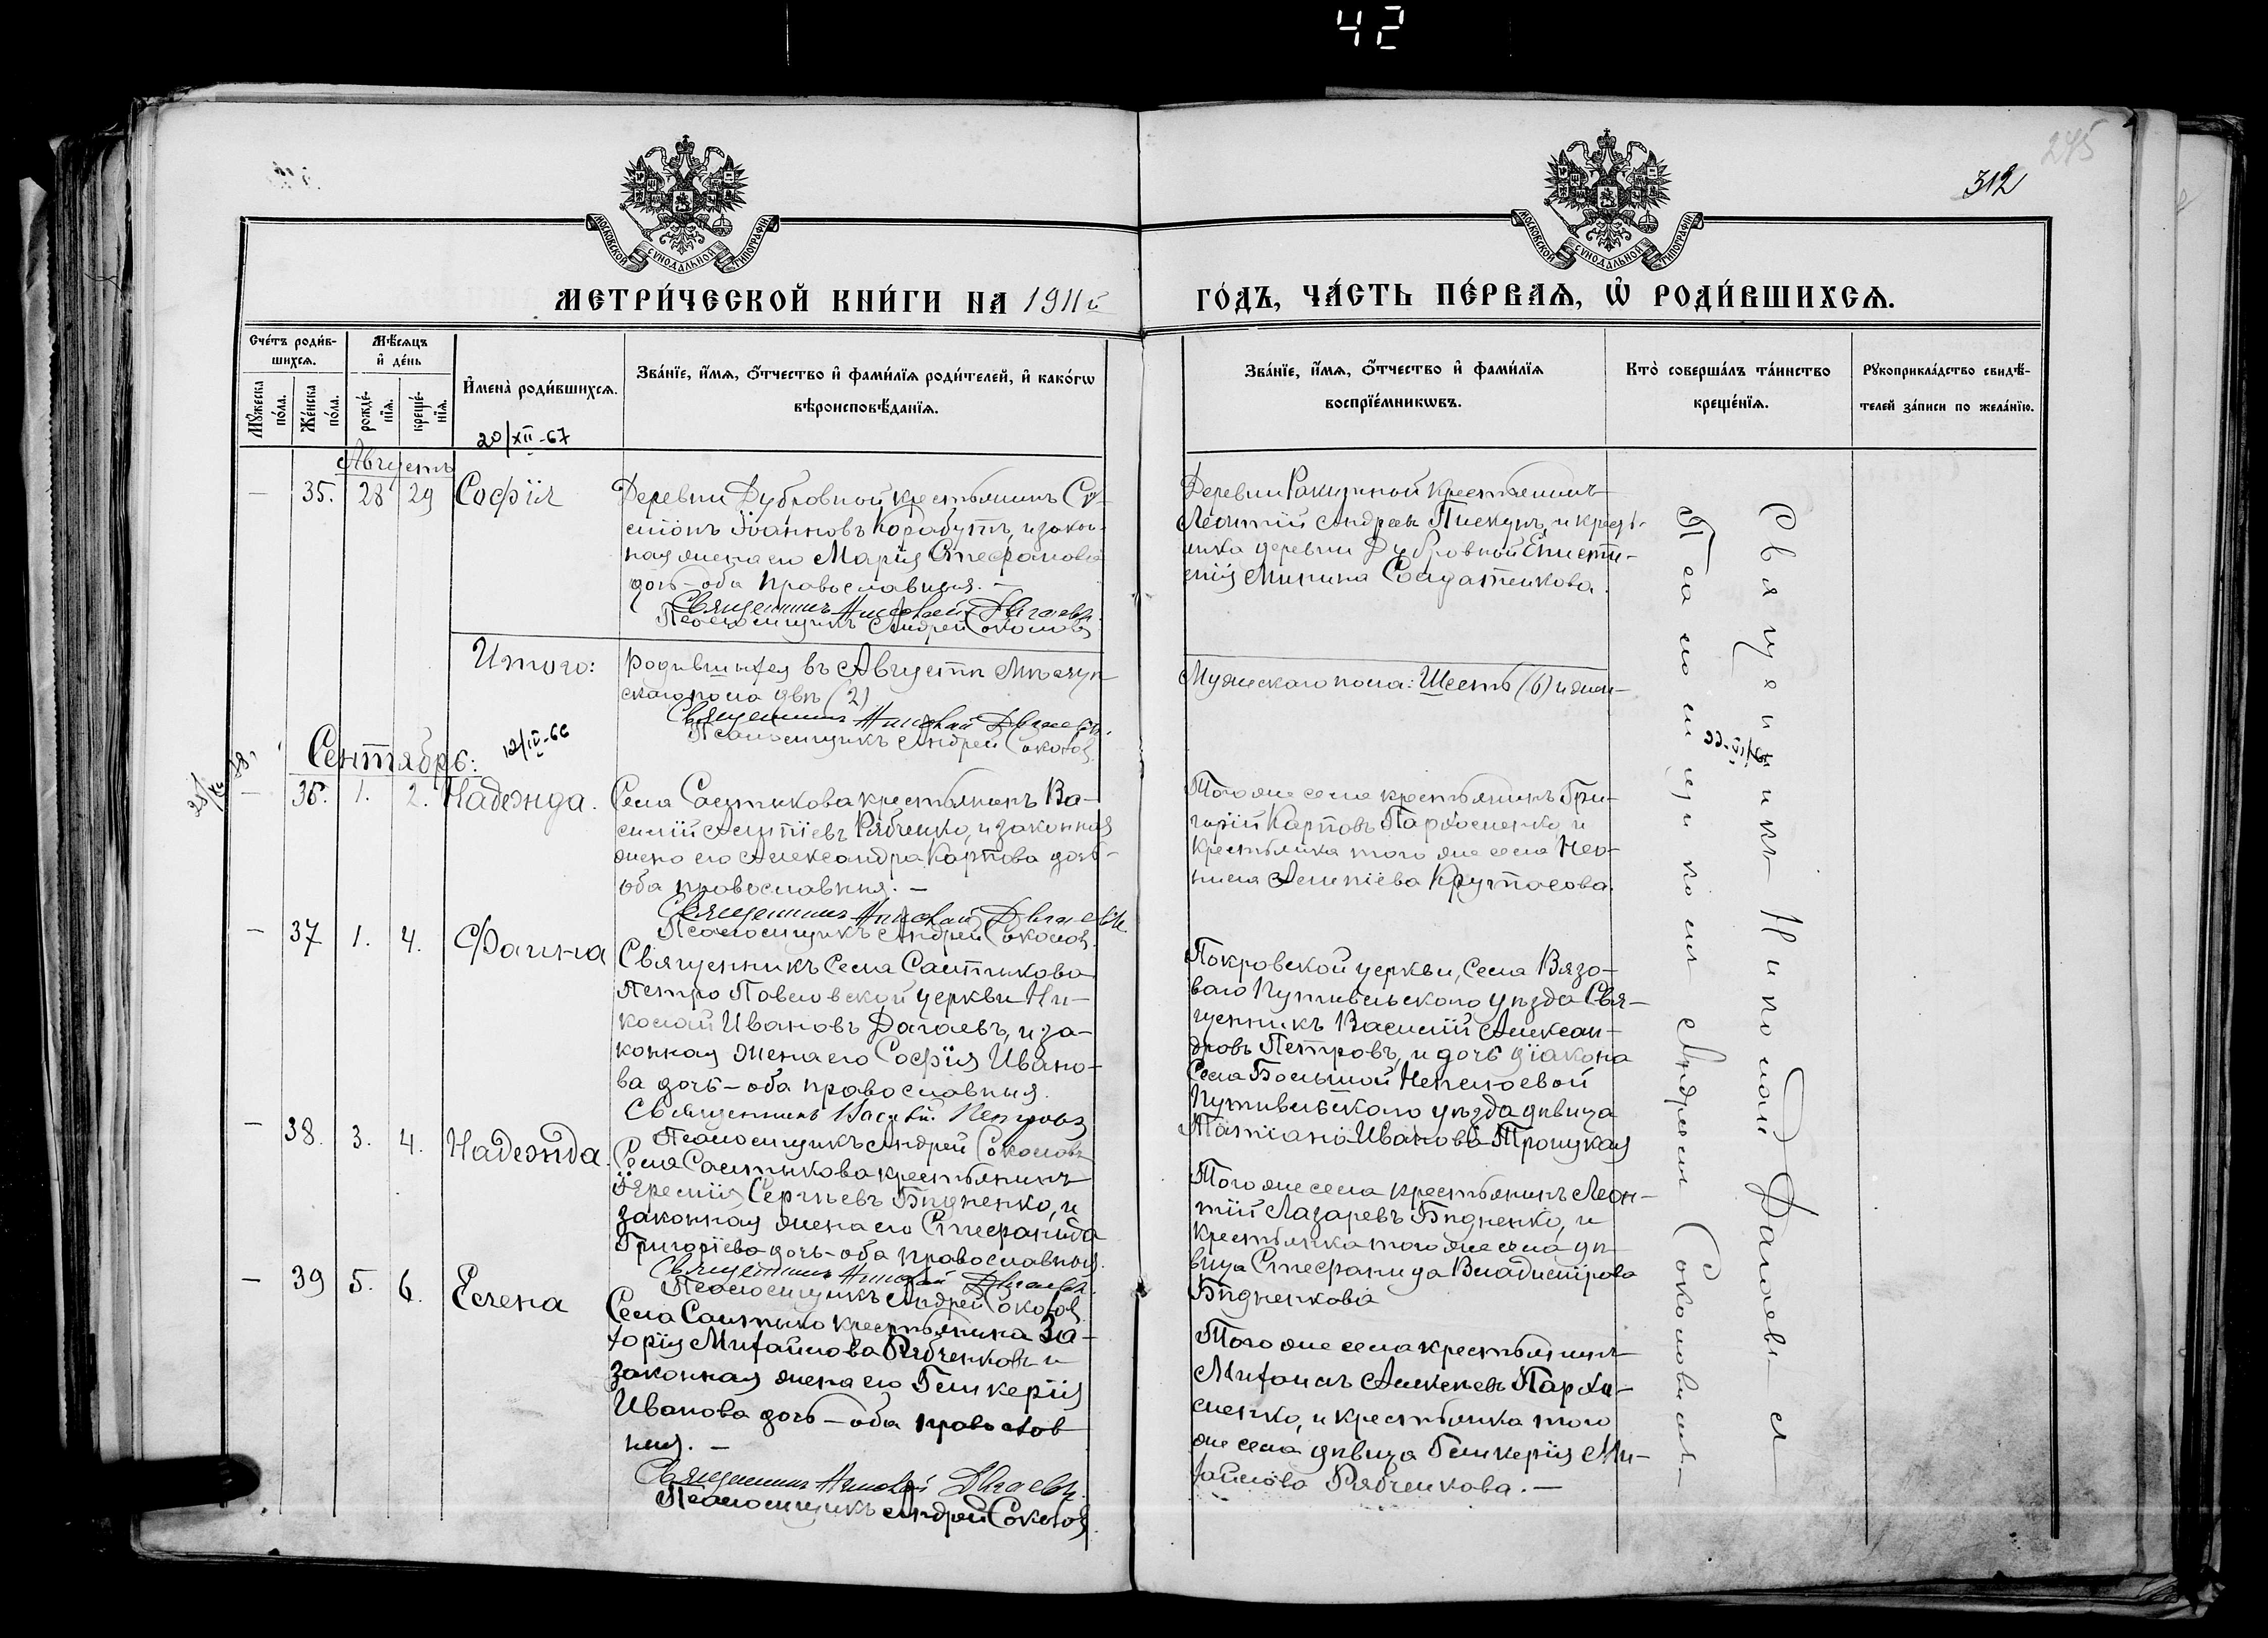 42
245
312
МОСКОВСКОЙ СѴНОДАЛЬНОЙ ТИПОГРАФІИ
МОСКОВСКОЙ СѴНОДАЛЬНОЙ ТИПОГРАФІИ
МЕТРИ́ЧЕСКОЙ КНИ́ГИ НА 1911й
ГО́ДЪ, ЧА́СТЬ ПЕ́РВАѦ, Ѡ҆ РОДИ́ВШИХСѦ.
Сче́тъ роди́в-
шихсѧ.
Мꙋ́жеска по́ла.
Же́нска по́ла.
Мѣ́сѧцъ и҆ де́нь
рожде́-нїѧ.
креще́-нїѧ.
И҆мена̀ роди́вшихсѧ.
Зва́нїе, и҆́мѧ, ѻ҆́тчество и҆ фами́лїѧ роди́телей, и҆ како́гѡ
вѣроисповѣ́данїѧ.
Зва́нїе, и҆́мѧ, ѻ҆́тчество и҆ фами́лїѧ
воспрїе́мникѡвъ.
Кто̀ соверша́лъ та́инство
креще́нїѧ.
Рꙋкоприкла́дство свидѣ́-
телей за́писи по жела́нїю.
20/XII-67
Августъ
— 35. 28 29 Софія
Деревни Дубровной крестьянинъ Си-
меонъ Іоанновъ Корабутъ, и закон-
ная жена его Марія Стефанова
дочь – оба православныя. –
Священникъ Николай Дагаевъ.
Псаломщикъ Андрей Соколовъ
Деревни Ракитной крестьянинъ
Леонтій Андреевъ Пискунъ, и кресть-
янка деревни Дубровной Еписти-
мія Минина Солдатенкова.
Итого:
родившихся въ Августѣ мѣсяцѣ
скаго пола двѣ (2)
Священникъ Николай Дагаевъ.
Псаломщикъ Андрей Соколовъ
Мужескаго пола: Шесть (6) и жен-
Сентябрь:
12/IV-66
— 36. 1. 2. Надежда.
Села Салтыкова крестьянинъ Ва-
силій Алипіевъ Рябченко, и законная
жена его Александра Карпова дочь –
оба православныя. –
Священникъ Николай Дагаевъ
Псаломщикъ Андрей Соколовъ
Того же села крестьянинъ Гри-
горій Карповъ Пархоменко, и
крестьянка того же села Нео-
нила Алипіева Крутасова.
— 37 1. 4. Фаина
Священникъ села Салтыкова
Петро Павловской церкви Ни-
колай Ивановъ Дагаевъ, и за-
конная жена его Софія Ивано-
ва дочь – оба православныя.
Священникъ Василій Петровъ
Псаломщикъ Андрей Соколовъ
Покровской церкви, села Вязо-
ваго Путивльскаго уѣзда Свя-
щенникъ Василій Алексан-
дровъ Петровъ, и дочь діакона
села Большой Неплюевой
Путивльскаго уѣзда дѣвица
Татіана Иванова Троицкая
— 38. 3. 4. Надежда.
Села Салтыкова крестьянинъ
Іеремія Сергѣевъ Бѣдненко, и
законная жена его Стефанида
Григоріева дочь – оба православныя.
Священникъ Николай Дагаевъ.
Псаломщикъ Андрей Соколовъ
Того же села крестьянинъ Леон-
тій Лазаревъ Бѣдненко, и
крестьянка того же села дѣ-
вица Стефанида Владимірова
Бѣдненкова
— 39 5. 6. Елена
Села Салтыкова крестьянина За-
харія Михайлова Рябченковъ и
законная жена его Гликерія
Иванова дочь – оба православ
ныя. –
Священникъ Николай Дагаевъ.
Псаломщикъ Андрей Соколовъ.
Того же села крестьянинъ
Михаилъ Алексѣевъ Пархо-
менко, и крестьянка того
же села дѣвица Гликерія Ми-
хайлова Рябченкова. –
Священникъ Николай Дагаевъ съ
Псаломщикомъ Андреемъ Соколовымъ